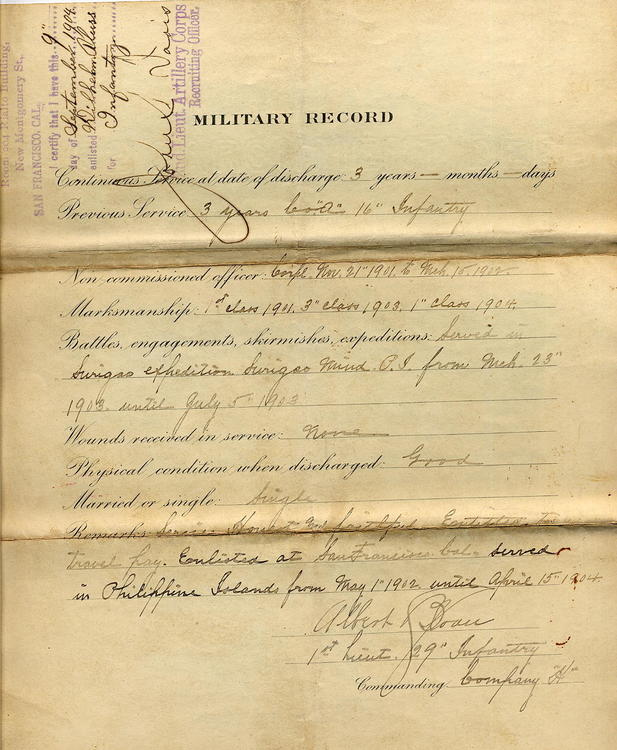 Room 301 Rialto Building,
New Montgomery St.,
SAN FRANCISCO, CAL.
I certify that I have this 9"
day of September, 1904,
enlisted Wilhelm
for Infantry
Lieut. Artillery Corps
Recruiting Officer.
MILITARY RECORD
Continuous Service at date of discharge: 3 years — months — days
Previous Service 3 years Co. "a" 16" Infantry
Non-commissioned officer: Corpl. Nov. 21" 1901. to Mch. 15, 1902.
Marksmanship: 1st class 1901, 3" class, 1903, 1" class 1904.
Battles, engagements, skirmishes, expeditions: Served in
Surigao expedition Surigao Mind. P.I. from Mch. 23"
1903. until July 5" 1903
Wounds received in service: None
Physical condition when discharged: Good
Married or single: Single
Remarks: Service Honest and faithful. Entitled to
travel pay. Enlisted at San Francisco Cal. Served
in Philippine Islands from May 1" 1902 until April 15" 1904.
Albert
1st Lieut. 29" Infantry
Commanding Company "H"